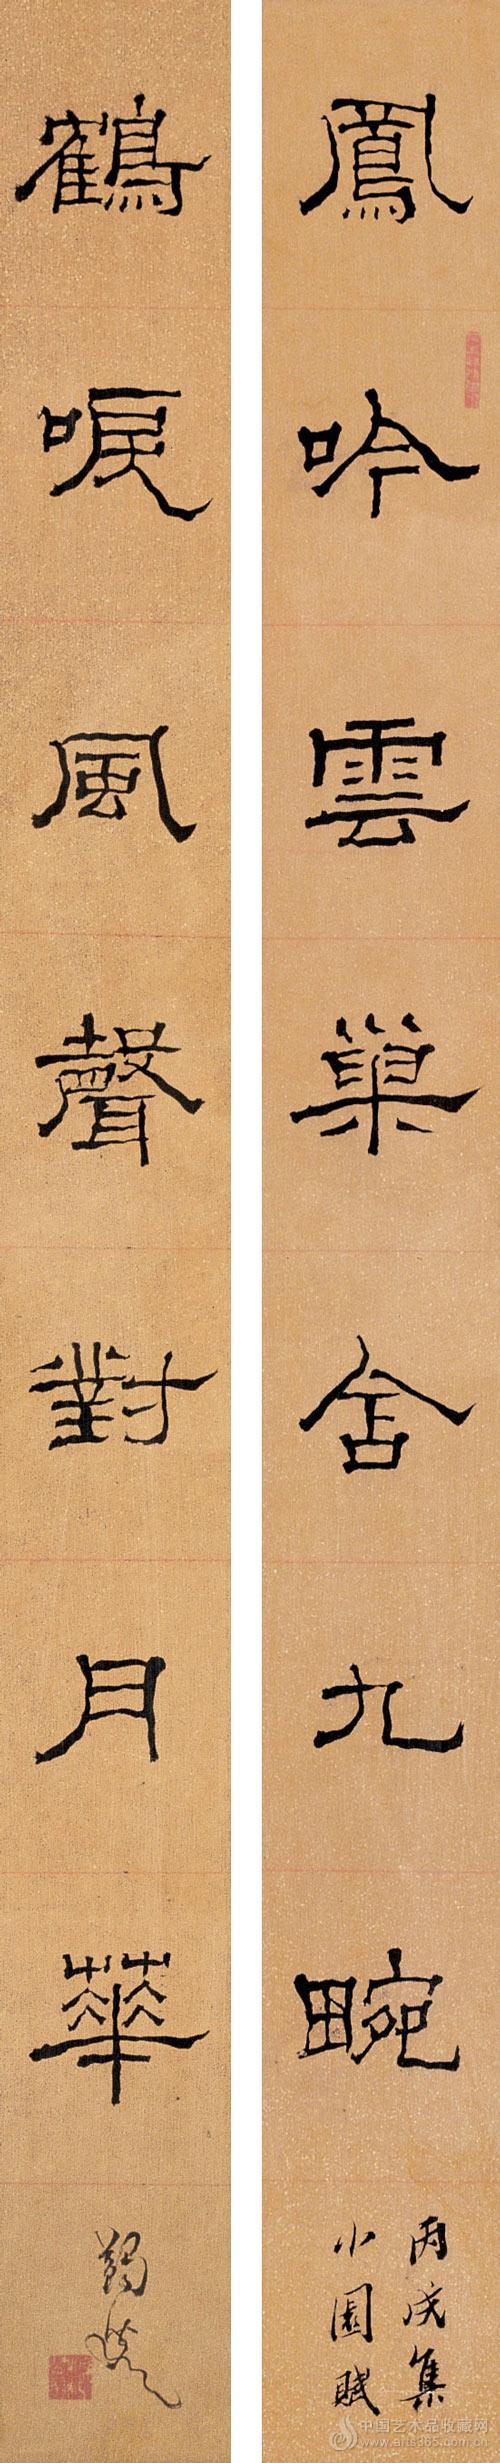 鳳吟雲巢舍九畹
丙戌集
小園賦
鶴唳風聲對月華
蠲叟
中国艺术品收藏网
www.arts365.com.cn